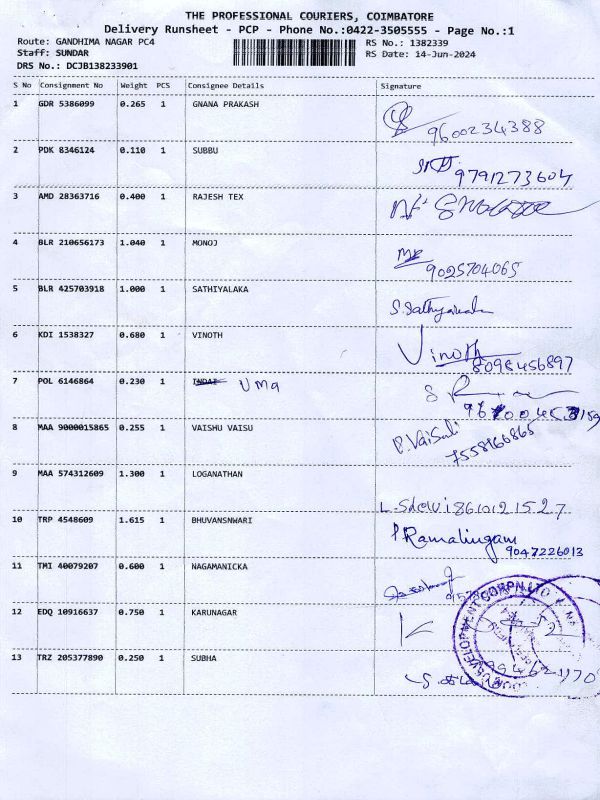 THE PROFESSIONAL COURIERS, COIMBATORE
Delivery Runsheet - PCP - Phone No.:0422-3505555 - Page No.:1
Route: GANDHIMA NAGAR PC4 RS No.: 1382339
Staff: SUNDAR RS Date: 14-Jun-2024
DRS No.: DCJB138233901
S No Consignment No Weight PCS Consignee Details Signature
1 GDR 5386099 0.265 1 GNANA PRAKASH
9600234388
2 PDK 8346124 0.110 1 SUBBU
9791273604
3 AMD 28363716 0.400 1 RAJESH TEX
4 BLR 210656173 1.040 1 MONOJ
9025704065
5 BLR 425703918 1.000 1 SATHIYALAKA
6 KDI 1538327 0.680 1 VINOTH Vinoth
8098456897
7 POL 6146864 0.230 1 INDAI Uma
8 MAA 9000015865 0.255 1 VAISHU VAISU P.Vaisali
7558166865
9 MAA 574312609 1.300 1 LOGANATHAN
L.Sdevi 8610121527
10 TRP 4548609 1.615 1 BHUVANSNWARI P Ramalingam
9047226013
11 TMI 40079207 0.600 1 NAGAMANICKA
12 EDQ 10916637 0.750 1 KARUNAGAR
13 TRZ 205377890 0.250 1 SUBHA